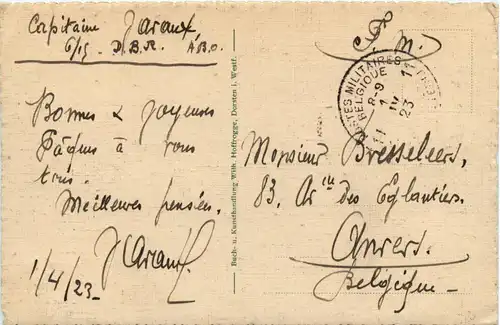 Capitaine
6/15 D.B.R. A.B.O.
Bonnes & joyeuses
Pâques à vous
tous.
Meilleures pensées.
1/4/23
Buch- u. Kunsthandlung Wilh. Hoffrogge, Dorsten i. Westf.
F. M.
POSTES MILITAIRES
BELGIQUE
8-9
1
IV
23
11
Monsieur Bresseleers,
83, Av. des Eglantiers.
Anvers.
Belgique